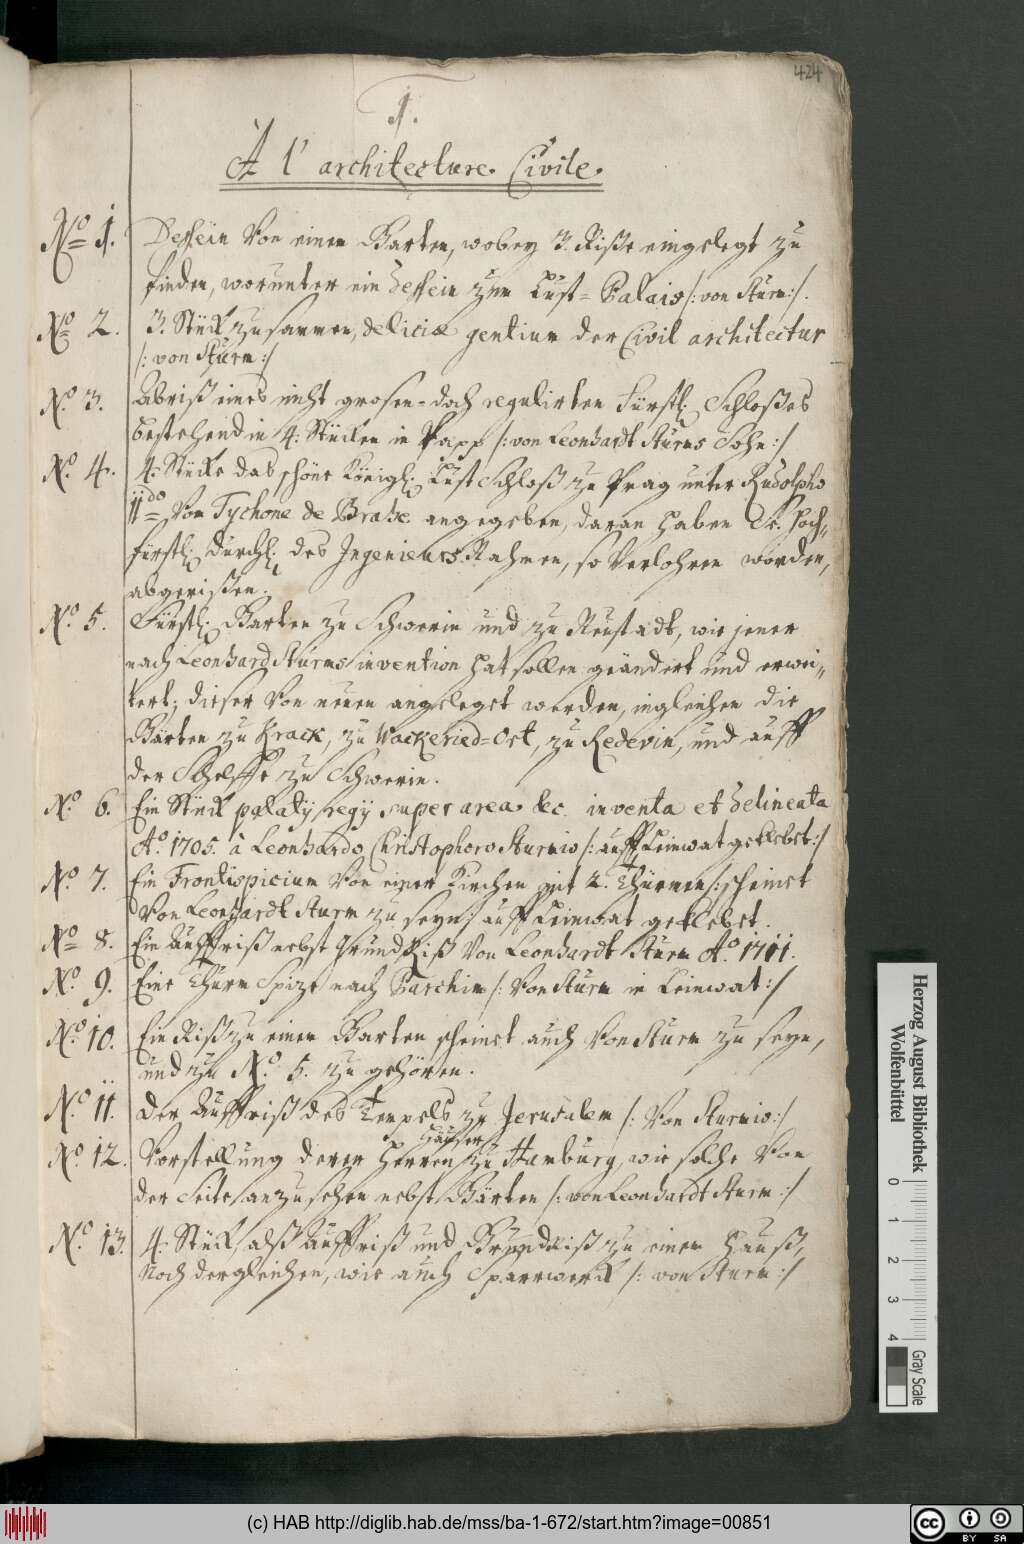 424
1.
A l' architecture Civile.
No 1. Dessein Von einem Garten, wobey 3. Riße eingelegt zu
finden, worunter ein Dessein zum Lust=Palais /: von Sturm:/.
No 2. 3. Stück zusammen, deliciæ gentium der Civil architectur
/: von Sturm :/
No. 3. Abriß eines nicht grosen=doch regulirten Fürstl: Schloßes
bestehend in 4: Stücken in Papp /: von Leonhardt Sturms Sohn :/
No. 4. 4: Stücke das schöne Königl: Lust Schloß zu Prag unter Rudolpho
IIdo Von Tychone de Brahe angegeben, daran haben Sr. Hoch=
fürstl: Durchl: des Ingenieurs Nahmen, so Verlohren worden,
abgerißen.
No. 5. Fürstl: Garten zu Schwerin und zu Neustadt, wie jener
nach Leonhard Sturms invention hat sollen geändert und erwei=
tert; dieser Von neuen angeleget werden, ingleichen die
Gärten zu Krack, zu Wackeried=Ost, zu Redevin, und auff
der Schelffe zu Schwerin.
No. 6. Ein Stück palatij regij super area &c. inventa et delineata
Ao. 1705. à Leonhardo Christophoro Sturmio /: auff Leinwat geklebet :/
No. 7. Ein Frontispicium Von einer Kirchen mit 2. Thürmen /: scheinet
Von Leonhardt Sturm zu seyn :/ auff Leinwat geklebet.
No 8. Ein Auffriß nebst Grund Riß Von Leonhardt Sturm Ao. 1711.
No. 9. Eine Thurm Spize nach Parchim /: Von Sturm in Leinwat :/
No. 10. Ein Riß zu einem Garten scheinet auch Von Sturm zu seyn,
und zu No. 5. zu gehören.
No. 11. Der Auffriß des Tempels zu Jerusalem /: Von Sturmio :/
Häuser
No. 12. Vorstellung derer Herren zu Hamburg, wie solche Von
der Seite anzusehen nebst Gärten /: von Leonhardt Sturm :/
No. 13. 4: Stück, alß Auffriß und Grundriß zu einem Hauß,
Noch dergleichen, wie auch Sparrwerck /: von Sturm :/
Herzog August Bibliothek
Wolfenbüttel
0 1 2 3 4
Gray Scale
(c) HAB http://diglib.hab.de/mss/ba-1-672/start.htm?image=00851
cc BY SA